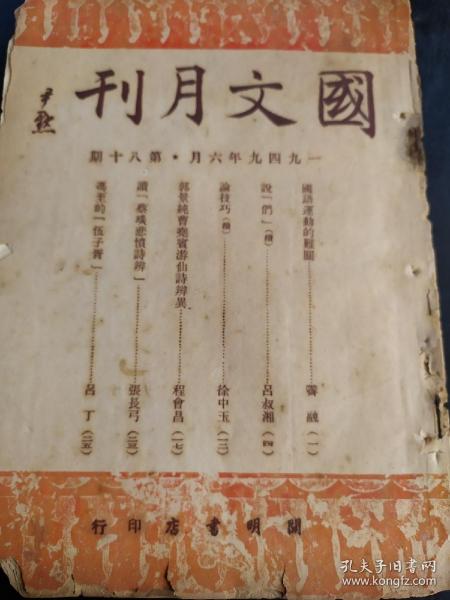 國文月刊
尹默
一九四九年六月·第八十期
國語運動的難關……（一）
說「們」（續）……呂叔湘（四）
論技巧（續）……徐中玉（一三）
郭景純曹堯賓游仙詩辨異……程會昌（一七）
讀「蔡琰悲憤詩辨」……張長弓（二三）
馮至的「伍子胥」……呂丁（二五）
開明書店印行
孔夫子旧书网
www.kongfz.com